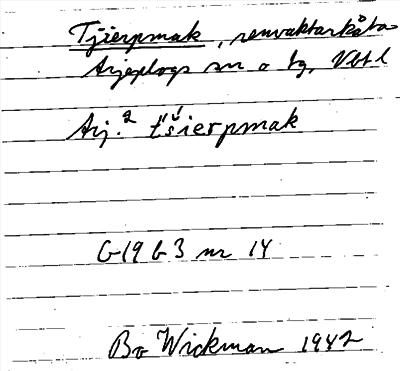 Tjierpmak, renvaktarkåta
Arjeplogs sn o tg, Vbtl
Arj.² t́'š́ierpmak
G19 b 3 nr 14
Bo Wickman 1942